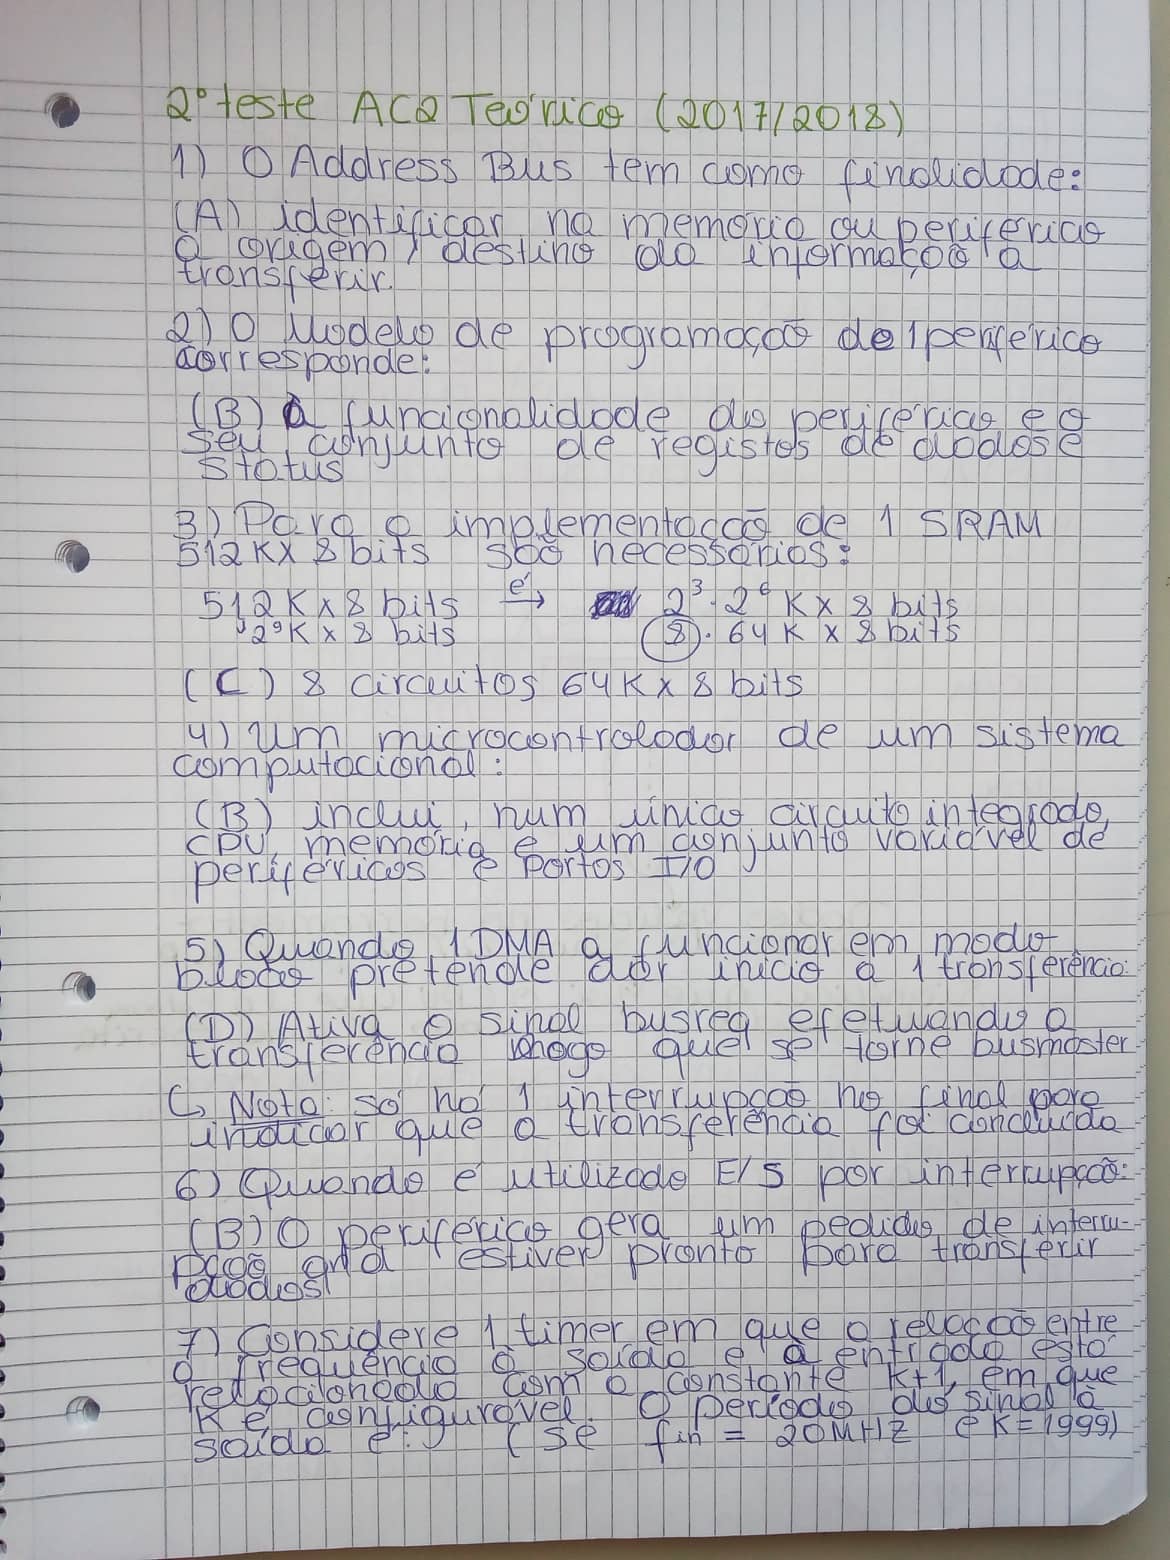 2º teste AC2 Teórico (2017/2018)
1) O Address Bus tem como finalidade:
(A) identificar, na memória ou periférico
a origem / destino da informação a
transferir.
2) O Modelo de programação de 1 periférico
corresponde:
(B) à funcionalidade do periférico e o
seu conjunto de registos de dados e
status
3) Para a implementação de 1 SRAM
512K x 8 bits são necessários:
512K x 8 bits é→ 2³ · 2⁶ K x 8 bits
2⁹K x 8 bits 8 · 64K x 8 bits
(C) 8 circuitos 64K x 8 bits
4) Um microcontrolador de um sistema
computacional:
(B) inclui, num único circuito integrado,
CPU, memória e um conjunto variável de
periféricos e portos I/O
5) Quando 1 DMA a funcionar em modo
bloco pretende dar início a 1 transferência:
(D) Ativa o sinal busreq efetuando a
transferência logo que se torne busmaster
↳ Nota: só há 1 interrupção no final para
indicar que a transferência foi concluída
6) Quando é utilizado E/S por interrupção:
(B) O periférico gera um pedido de interru-
pção qnd estiver pronto para transferir
dados
7) Considere 1 timer em que a relação entre
a frequência à saída e à entrada está
relacionada com a constante k+1, em que
K é configurável. O período do sinal à
saída é: (se fin = 20MHZ e K=1999)